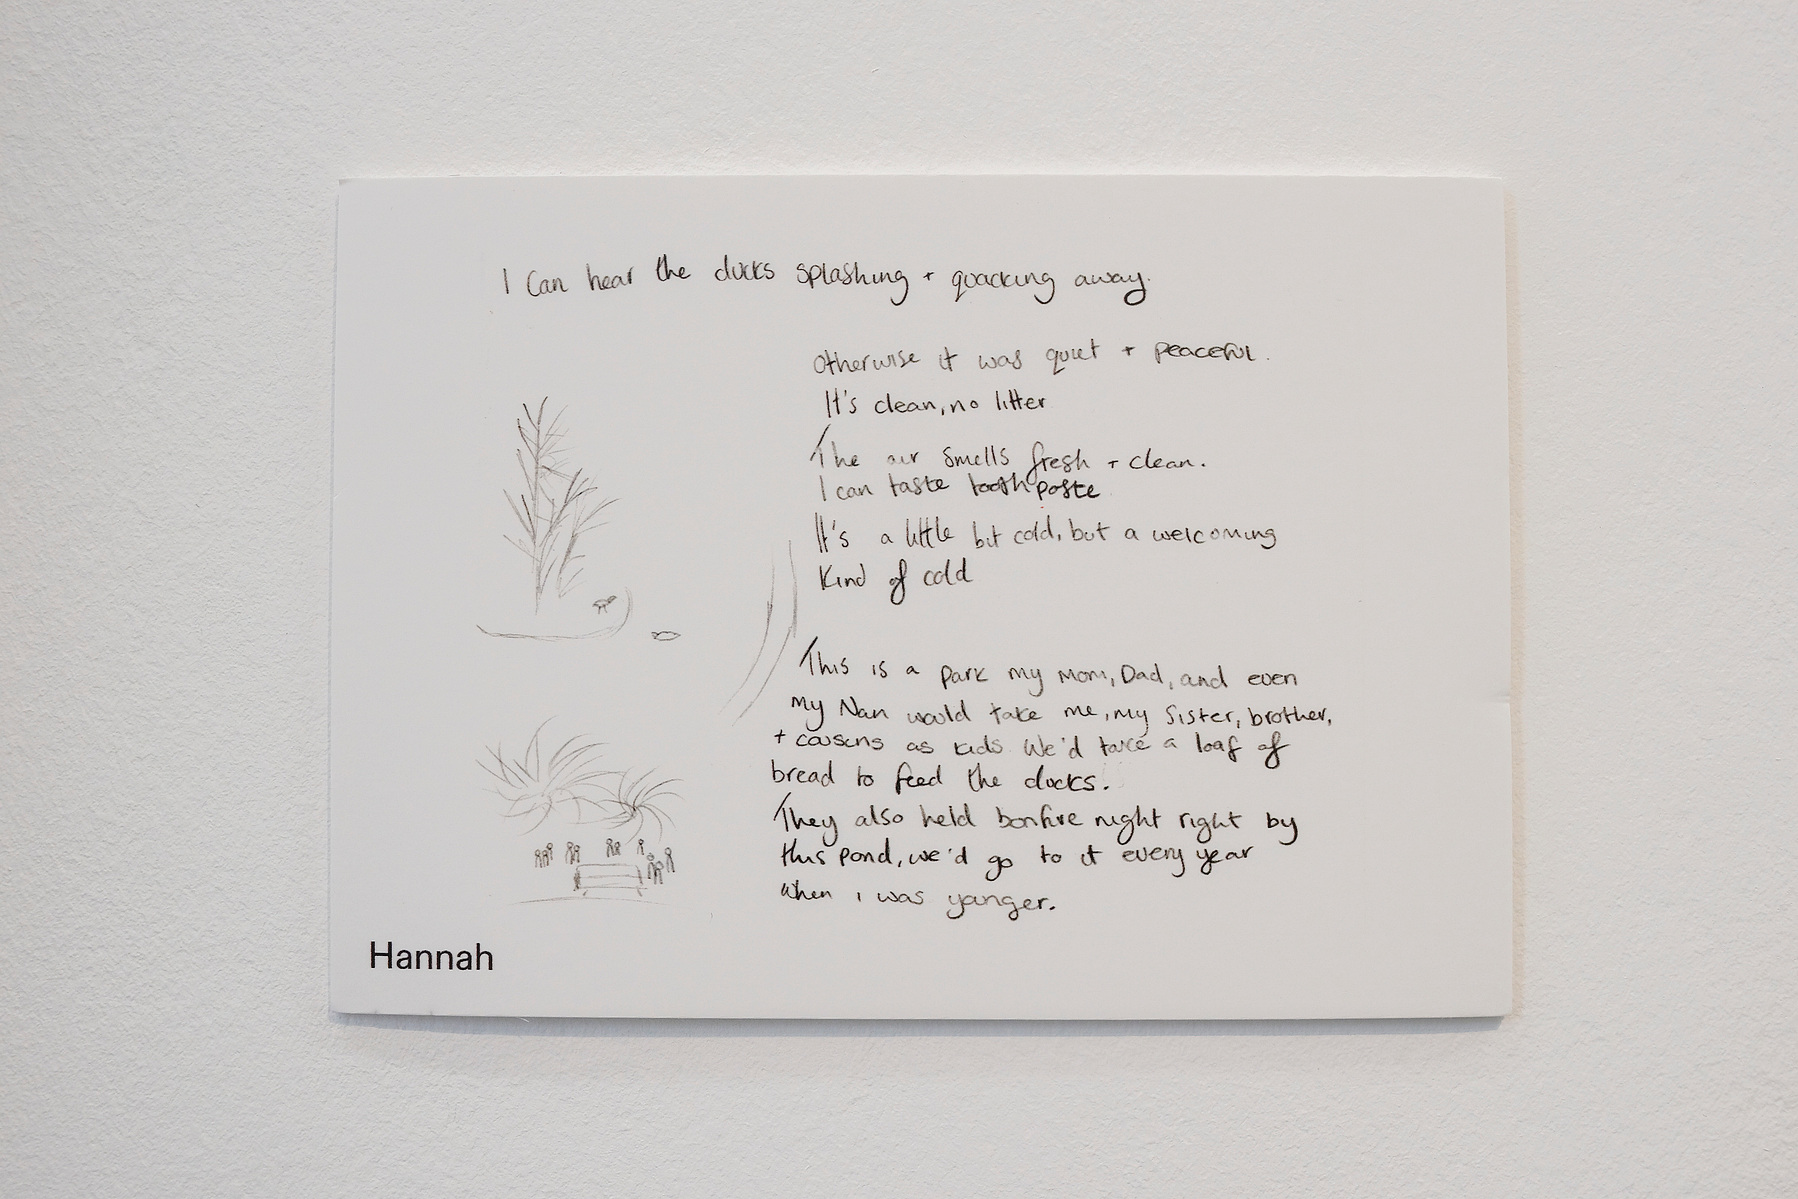 I can hear the ducks splashing + quacking away.
Otherwise it was quiet + peaceful.
It's clean, no litter
The air smells fresh + clean.
I can taste toothpaste
It's a little bit cold, but a welcoming
kind of cold
This is a park my Mom, Dad, and even
my Nan would take me, my sister, brother,
+ cousins as kids. We'd take a loaf of
bread to feed the ducks.
They also held bonfire night right by
this pond, we'd go to it every year
when i was yanger.
Hannah